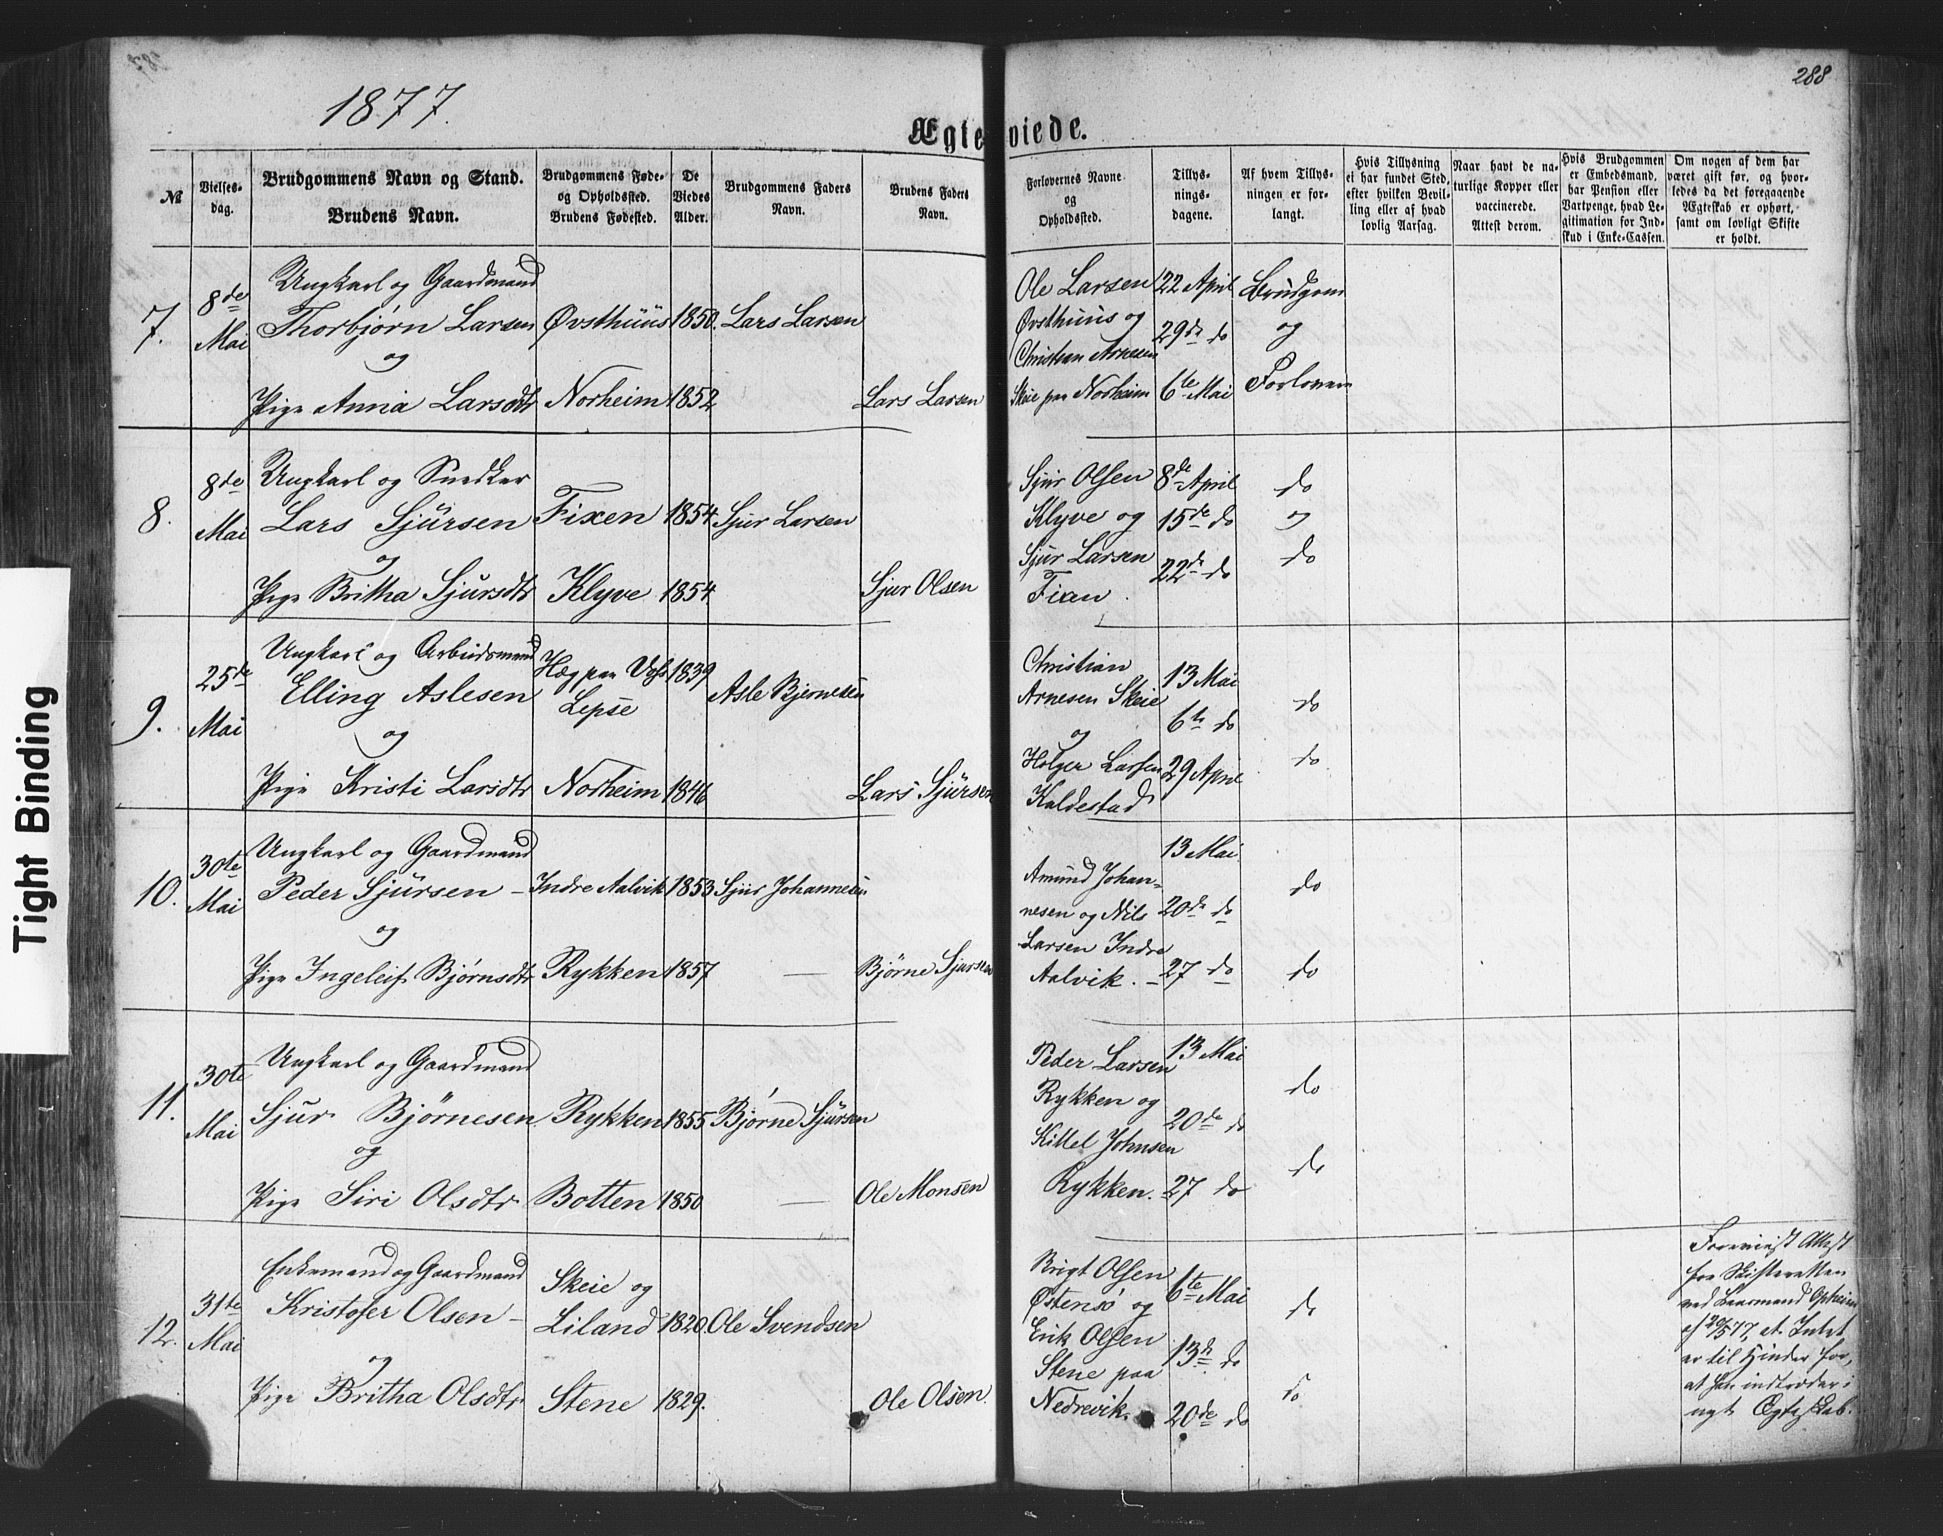 288
1877.
Ægteviede.
№
Vielses-
dag.
Brudgommens Navn og Stand.
Brudens Navn.
Brudgommens Føde-
og Opholdssted.
Brudens Fødested.
De
Viedes
Alder.
Brudgommens Faders
Navn.
Brudens Faders
Navn.
Forlovernes Navne
og
Opholdssted.
Tillys-
nings-
dagene.
Af hvem Tillys-
ningen er for-
langt.
Hvis Tillysning
ei har fundet Sted,
efter hvilken Bevil-
ling eller af hvad
lovlig Aarsag.
Naar havt de na-
turlige Kopper eller
vaccinerede.
Attest derom.
Hvis Brudgommen
er Embedsmand,
har Pension eller
Vartpenge, hvad Le-
gitimation for Ind-
skud i Enke-Cassen.
Om nogen af dem har
været gift før, og hvor-
ledes da det foregaaende
Ægteskab er ophørt,
samt om lovligt Skifte
er holdt.
7.
8de
Mai
Ungkarl og Gaardmand
Thorbjørn Larsen
og
Pige Anna Larsdtr
Øvsthuus
Norheim
1850.
1852
Lars Larsen
Lars Larsen
Ole Larsen
Øvsthuus og
Christian Arnesen
Skeie paa Norheim
22 April
29de do
6te Mai
Brudgom
og
Forlovere
8.
8de
Mai
Ungkarl og Snedker
Lars Sjursen
og
Pige Britha Sjursdtr
Fixen
Klyve
1854
1854
Sjur Larsen
Sjur Olsen
Sjur Olsen
Klyve og
Sjur Larsen
Fixen
8de April
15de do
22de do
do
og
do
9.
25de
Mai
Ungkarl og Arbeidsmand
Elling Aslesen
og
Pige Kristi Larsdtr
Hæg paa Voss
Lepse
Norheim
1839
1846
Asle Bjørnesen
Lars Sjursen
Christian
Arnesen Skeie
og
Holger Larsen
Kaldestad
13 Mai
6te do
29 April
do
do
10.
30te
Mai
Ungkarl og Gaardmand
Peder Sjursen –
og
Pige Ingeleif Bjørnsdtr
Indre Aalvik
Rykken
1853
1857
Sjur Johannesen
—
Bjørne Sjursen
Amund Johan-
nesen og Nils
Larsen Indre
Aalvik. –
13 Mai
20de do
27 do
do
do
11.
30te
Mai
Ungkarl og Gaardmand
Sjur Bjørnesen
og
Pige Siri Olsdtr
Rykken
Botten
1855
1850
Bjørne Sjursen
—
Ole Monsen
Peder Larsen
Rykken og
Kittel Johnsen
Rykken.
13 Mai
20de do
27 do
do
do
12.
31te
Mai
Enkemand og Gaardmand
Kristofer Olsen –
og
Pige Britha Olsdtr
Skeie og
Liland
Stene
1820.
1829.
Ole Svendsen
Ole Olsen.
Brigt Olsen
Østensø og
Erik Olsen
Stene paa
Nedrevik.
6te Mai
13de do
20de do
do
do
Foreviist Attest
fra Skifteretten
ved Lensmand Opheim
af 20/5 77, at Intet
er til Hinder for,
at han indtræder i
nyt Ægteskab.
Tight Binding